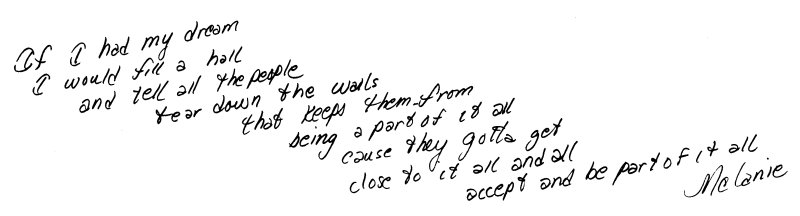 If I had my dream
I would fill a hall
and tell all the people
tear down the walls
that keeps them from
being a part of it all
cause they gotta get
close to it all and all
accept and be part of it all
Melanie